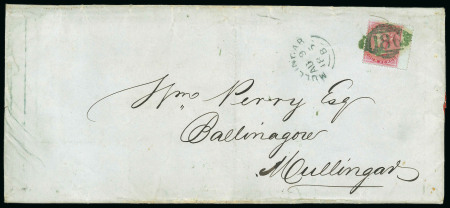 MULLINGAR
AU 9
Wm Perry Esq
Ballinagore
Mullingar